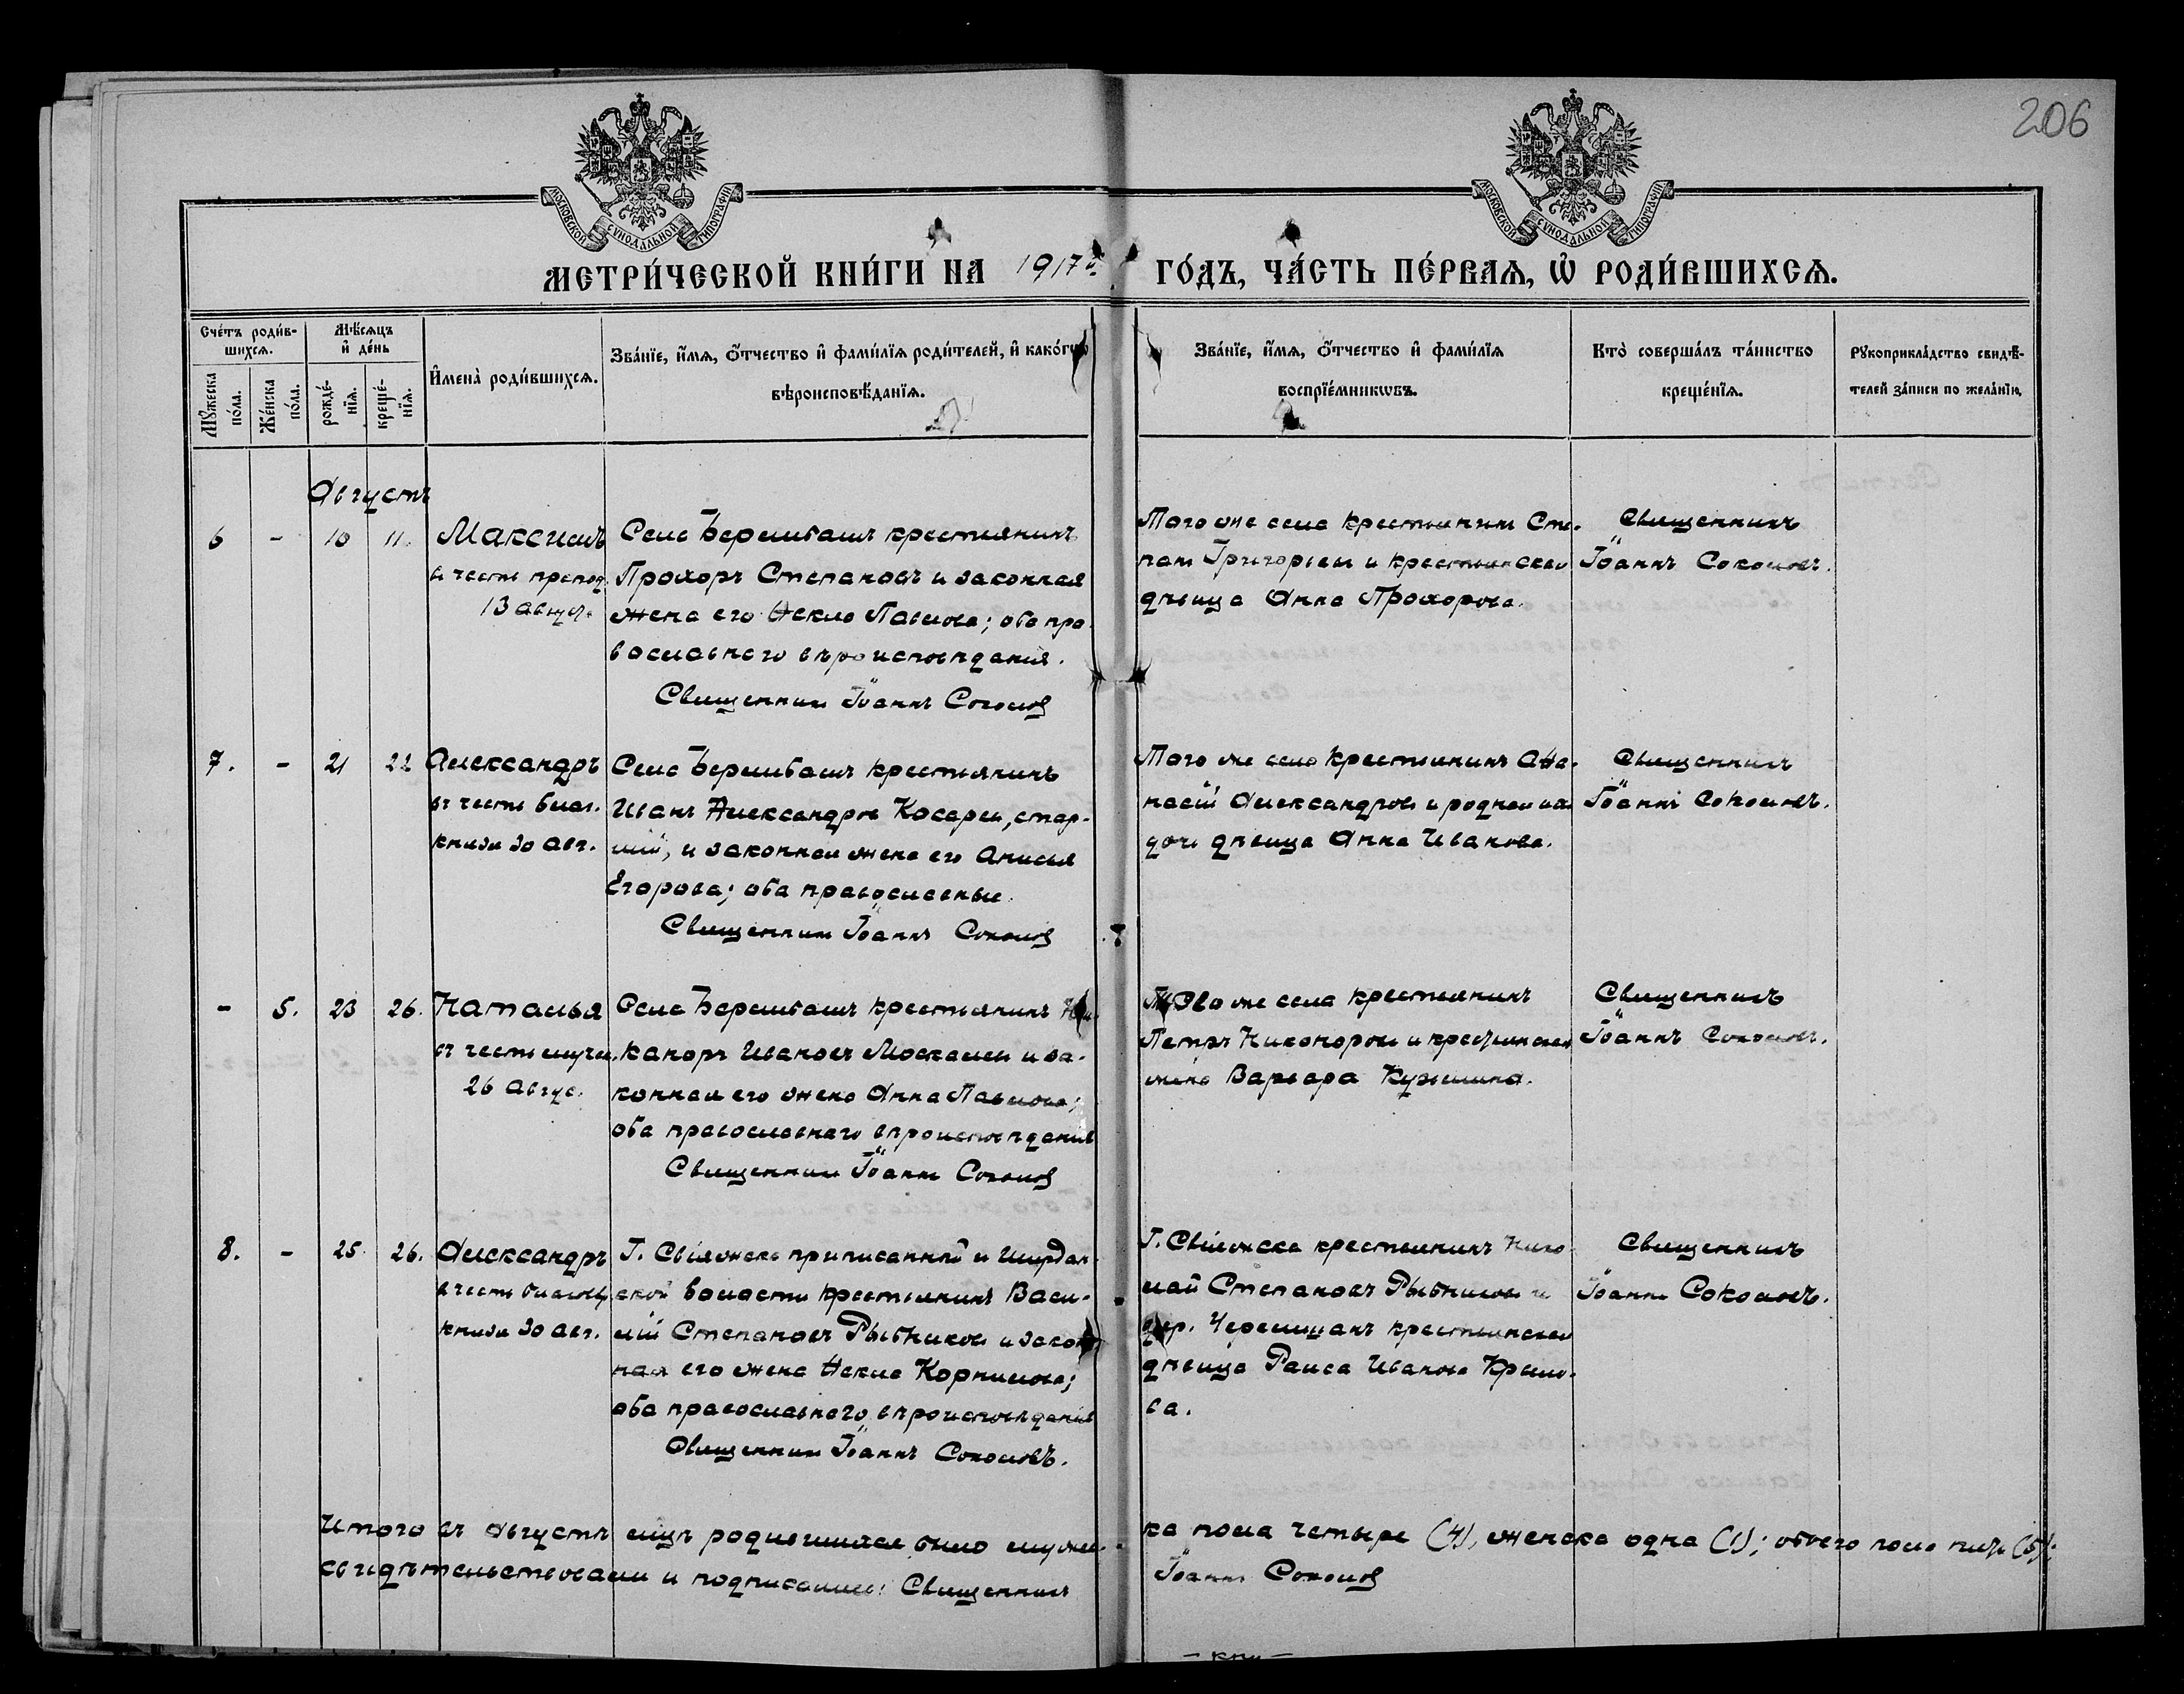 206
МОСКОВСКОЙ СѴНОДАЛЬНОЙ ТИПОГРАФІИ
МОСКОВСКОЙ СѴНОДАЛЬНОЙ ТИПОГРАФІИ
МЕТРИ́ЧЕСКОЙ КНИ́ГИ НА 1917й ГО́ДЪ, ЧА́СТЬ ПЕ́РВАѦ, Ѡ҆ РОДИ́ВШИХСѦ.
Сче́тъ роди́в-
шихсѧ.
Мꙋ́жеска по́ла.
Же́нска по́ла.
Мѣ́сѧцъ
и҆ де́нь
рожде́-нїѧ.
креще́-нїѧ.
И҆мена̀ роди́вшихсѧ.
Зва́нїе, и҆́мѧ, ѻ҆́тчество и҆ фами́лїѧ роди́телей, и҆ како́гѡ
вѣроисповѣ́данїѧ.
Зва́нїе, и҆́мѧ, ѻ҆́тчество и҆ фами́лїѧ
воспрїе́мникѡвъ.
Кто̀ соверша́лъ та́инство
креще́нїѧ.
Рꙋкоприкла́дство свидѣ́-
телей за́писи по жела́нїю.
Августъ
6 - 10 11. Максимъ
въ честь препод.
13 август.
Села Беришбашъ крестьянинъ
Прохоръ Степановъ и законная
жена его Текла Павлова; оба пра-
вославнаго вѣроисповѣданія.
Священникъ Іоаннъ Соколов
Того же села крестьянинъ Сте-
пан Григорьевъ и крестьянская
дѣвица Анна Прохорова.
Священникъ
Іоаннъ Соколовъ.
7. - 21 22 Александръ
въ честь благ.
князя 30 авг.
Села Беришбашъ крестьянинъ
Иванъ Александров Косарев, стар-
шій, и законная жена его Анисья
Егорова; оба православные.
Священникъ Іоаннъ Соколов
Того же села крестьянинъ Афа-
насій Александров и родная их
дочь дѣвица Анна Иванова.
Священникъ
Іоаннъ Соколовъ.
- 5. 23 26. Наталья
въ честь мучен.
26 авгус.
Села Беришбашъ крестьянинъ Ни-
каноръ Ивановъ Москалев и за-
конная его жена Анна Павлова;
оба православнаго вѣроисповѣданія
Священникъ Іоаннъ Соколов
Того же села крестьянинъ
Петръ Никоноров и крестьянская
жена Варвара Кузьмина.
Священникъ
Іоаннъ Соколовъ.
8. - 25 26. Александръ
въ честь благовѣр.
князя 30 авг.
Г. Свіяжска приписанный и Ширдан-
ской волости крестьянинъ Васи-
лій Степановъ Рыбников и закон-
ная его жена Текла Корнилова;
оба православнаго вѣроисповѣданія
Священникъ Іоаннъ Соколовъ.
Г. Свіяжска крестьянинъ Нико-
лай Степановъ Рыбников и
дер. Черемшанъ крестьянская
дѣвица Раиса Иванова Крыло-
ва.
Священникъ
Іоаннъ Соколовъ.
Итого въ августѣ мцѣ родившихся было мужес-ка пола четыре (4), женска одна (1); обоего пола пять (5);
свидѣтельствовалъ и подписался: Священникъ Іоаннъ Соколов